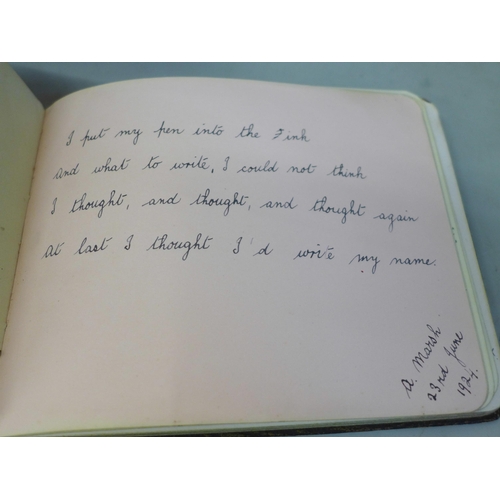 I put my pen into the Fink
And what to write, I could not think
I thought, and thought, and thought again
At last I thought I'd write my name.
A. Marsh.
23rd June
1927.